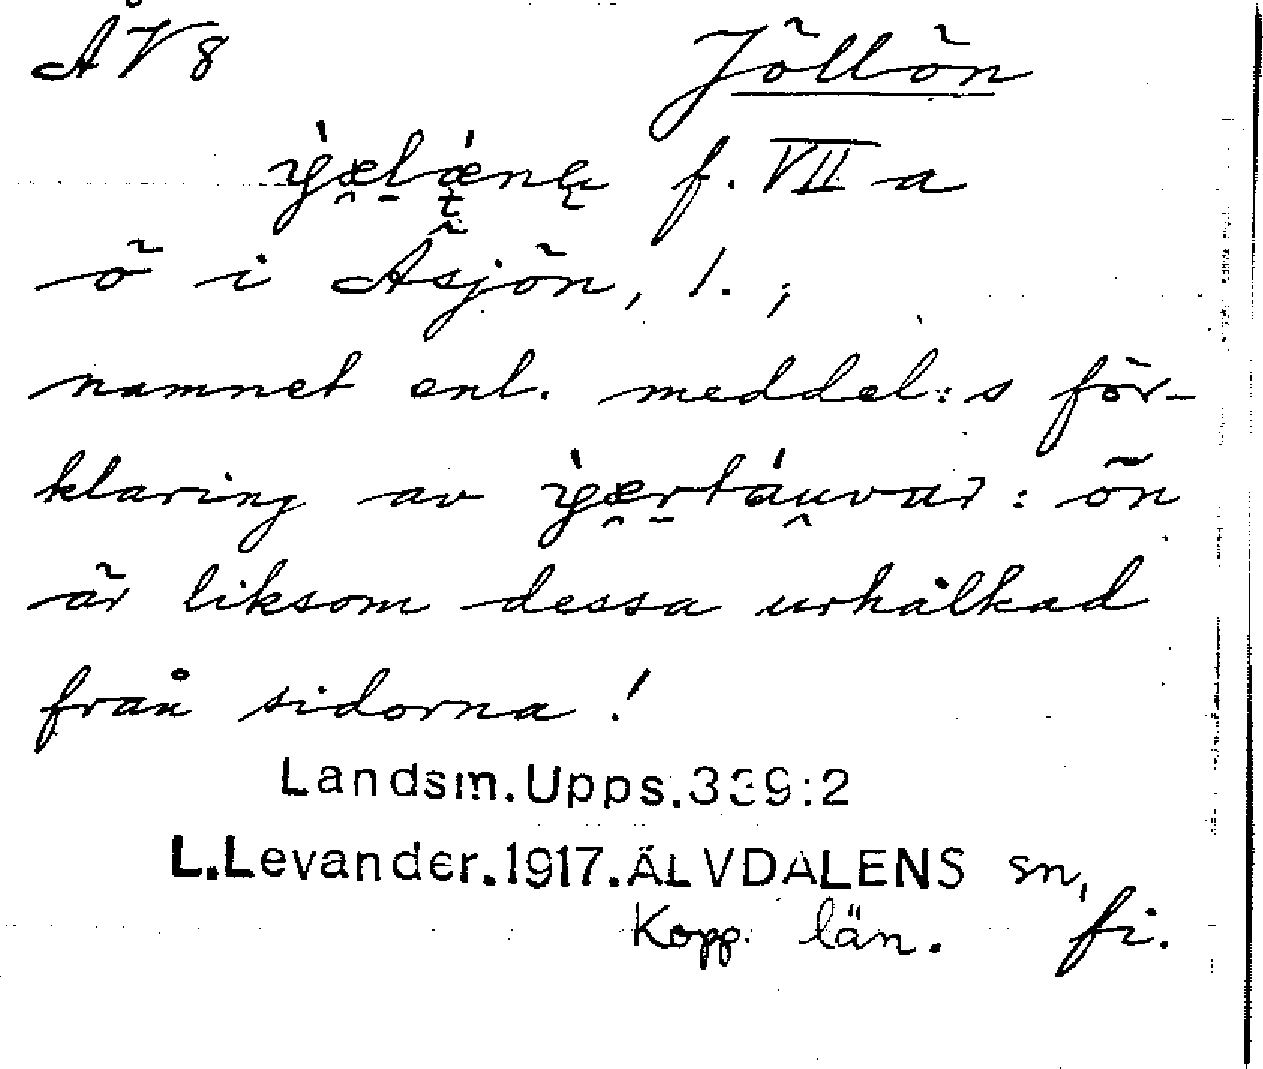 ÅV8 Jöllön
f. VII a
ö i Åsjön, l. ;
namnet enl. meddel:s för-
klaring av : ön
är liksom dessa urhålkad
från sidorna!
Landsm.Upps.339:2
L.Levander.1917.ÄLVDALENS sn,
Kopp. län. fi.